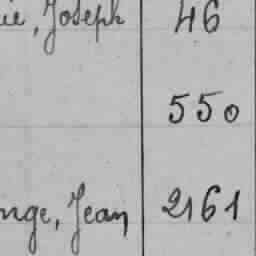 ie, Joseph 46
550
nge, Jean 2161